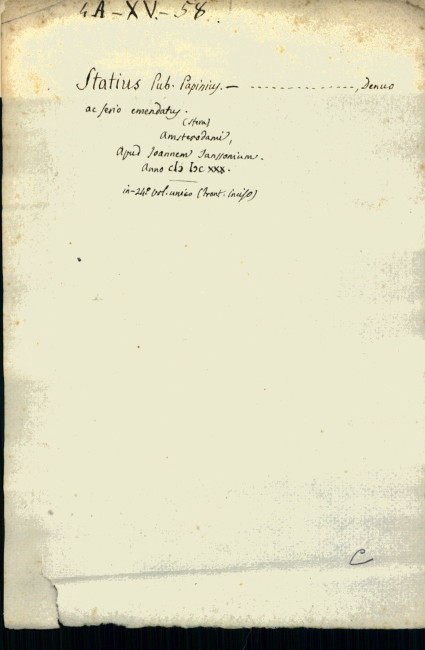 4A-XV-58.
Statius Pub. Papinius. — - - - - - - - - - - - - - - -, denuo
ac serio emendatus.
(stem)
Amsterodami,
Apud Joannem Janssonium.
Anno cIↄ Iↄc xxx.
in-24º vol. unico (front. inciso)
C